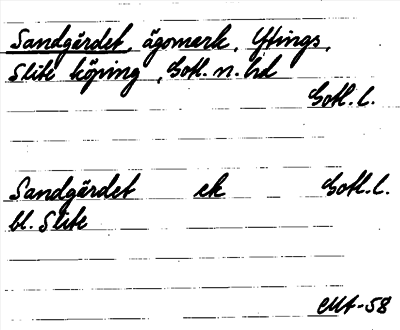 Sandgärdet, ägomark, Yttings,
Slite köping, Gotl. n. hd
Gotl. l.
Sandgärdet ek Gotl. l.
bl. Slite
EMA-58